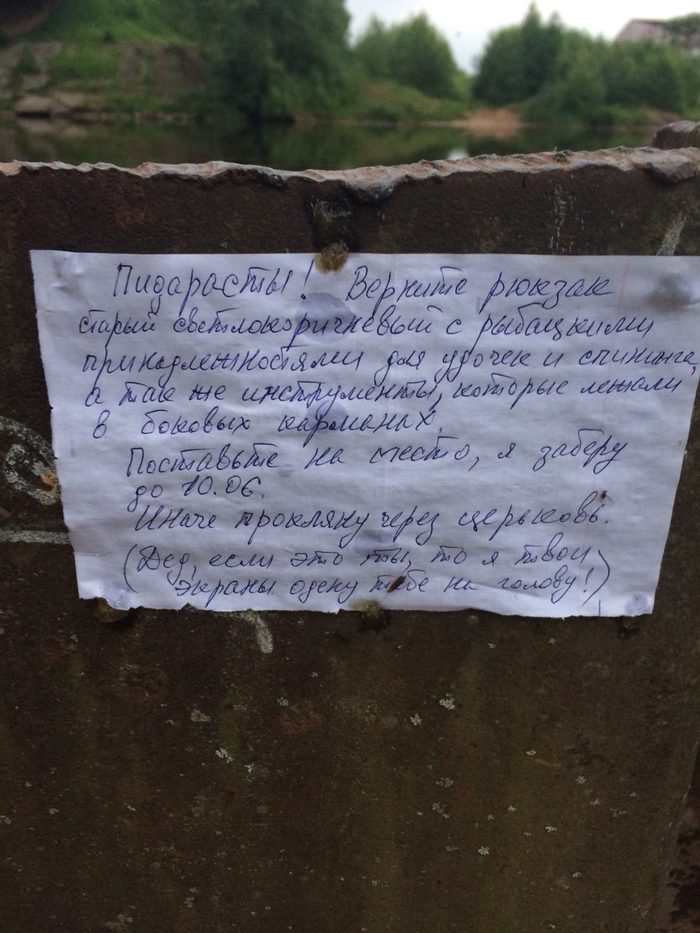 Пидарасты! Верните рюкзак
старый светлокоричневый с рыбацкими
принадлежностями для удочек и спининга,
а так же инструменты, которые лежали
в боковых карманах.
Поставьте на место, я заберу
до 10.06.
Иначе прокляну через церьковь.
(Дед, если это ты, то я твои
экраны одену тебе на голову!)